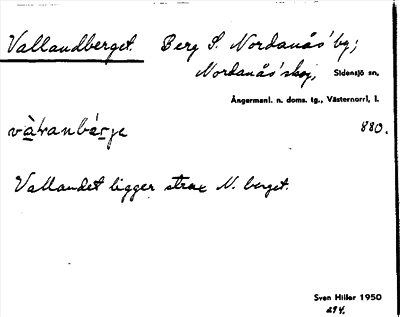 Vallandberget. Berg S. Nordanås' by;
Nordanås' skog, Sidensjö sn,
Ångermanl. n. doms. tg., Västernorrl, l.
880.
Vallandet ligger strax N. berget.
Sven Hiller 1950
294.